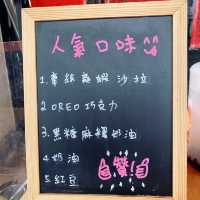 人氣口味
1. 龍蝦 沙拉
2. OREO 巧克力
3. 黑糖麻糬奶油
4. 奶油
5. 紅豆
讚